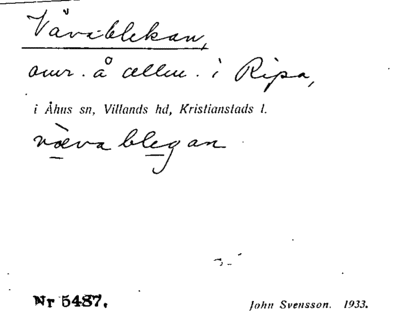 Vävablekan,
omr. å ællm. i Ripa,
i Åhus sn, Villands hd, Kristianstads l.
væva blegan
Nr 5487.
John Svensson. 1933.